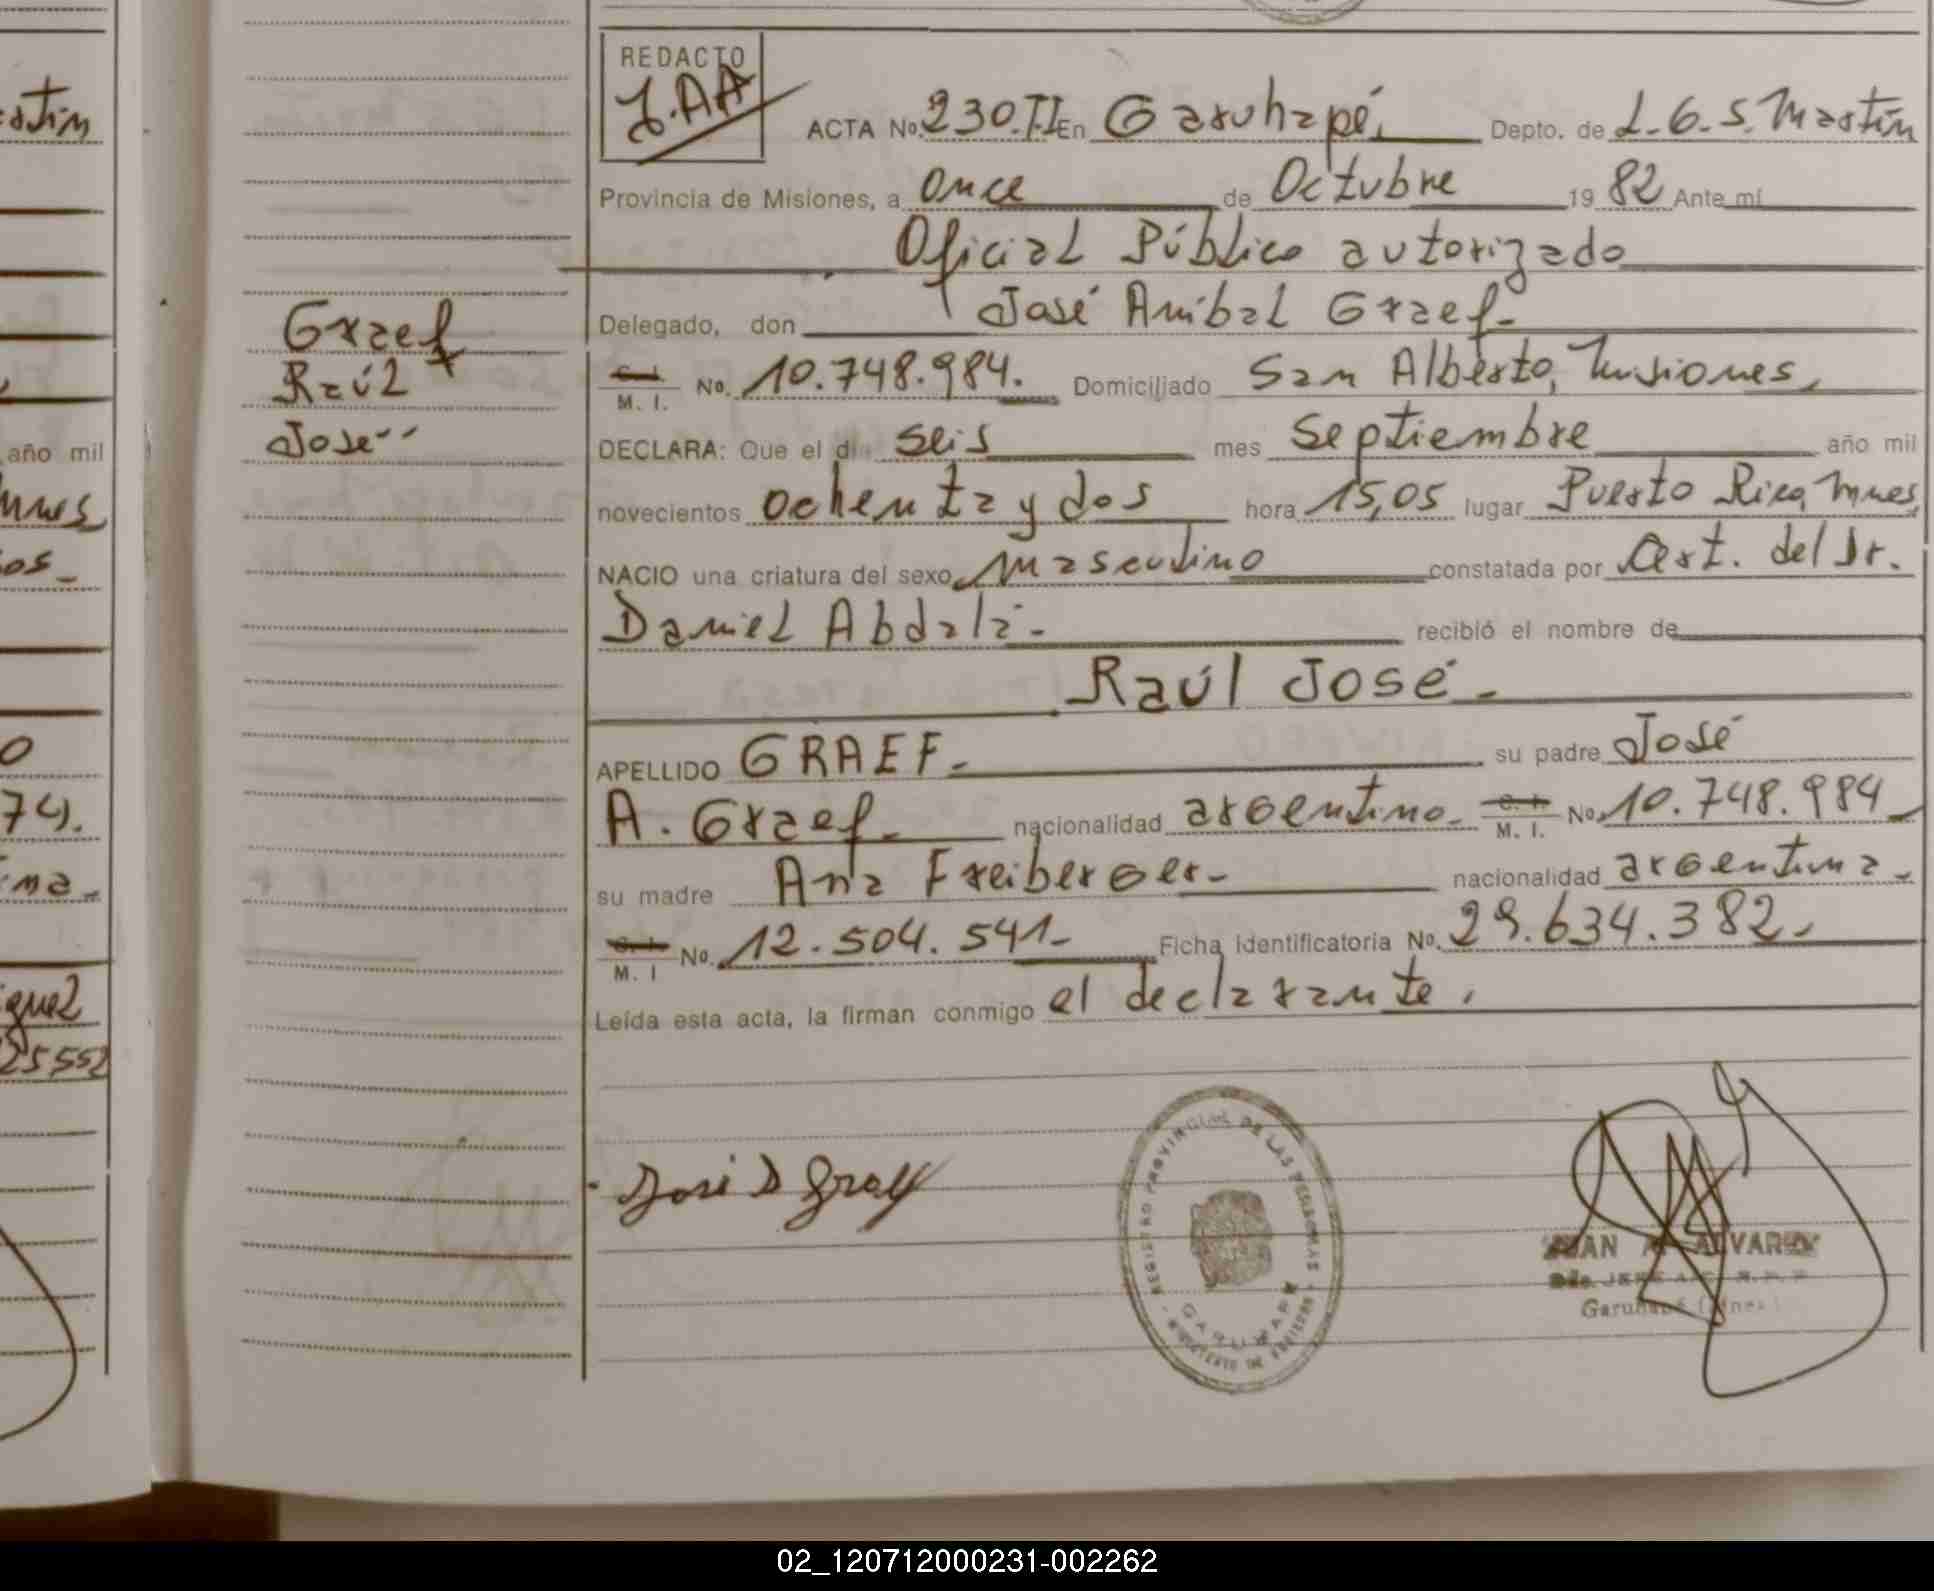 REDACTO
J.AA
ACTA No. 230.TI En Garuhapé, Depto. de L.G.S. Martín
Provincia de Misiones, a once de Octubre 19 82 Ante mí
Oficial Público autorizado
Delegado, don José Aníbal Graef-
C. I. M. I. No. 10.748.984. Domiciliado San Alberto, Misiones,
DECLARA: Que el dí seis mes septiembre año mil
novecientos ochenta y dos hora 15,05 lugar Puerto Rico, Mnes,
NACIO una criatura del sexo masculino constatada por Cert. del Dr.
Daniel Abdala- recibió el nombre de
Raúl José-
APELLIDO GRAEF- su padre José
A. Graef- nacionalidad argentino- C. I. M. I. No. 10.748.984
su madre Ana Freiberger- nacionalidad argentina-
C. I. M. I No. 12.504.541- Ficha Identificatoria No. 29.634.382-
Leída esta acta, la firman conmigo el declarante,
Graef
Raúl
José
José A Graef
REGISTRO PROVINCIAL DE LAS PERSONAS
GARUHAPE
MINISTERIO DE GOBIERNO
JUAN A. ALVAREZ
Garuhapé (Mnes)
artín
año mil
Mnes
os-
o
74).
ina-
iguel
25552
02_120712000231-002262